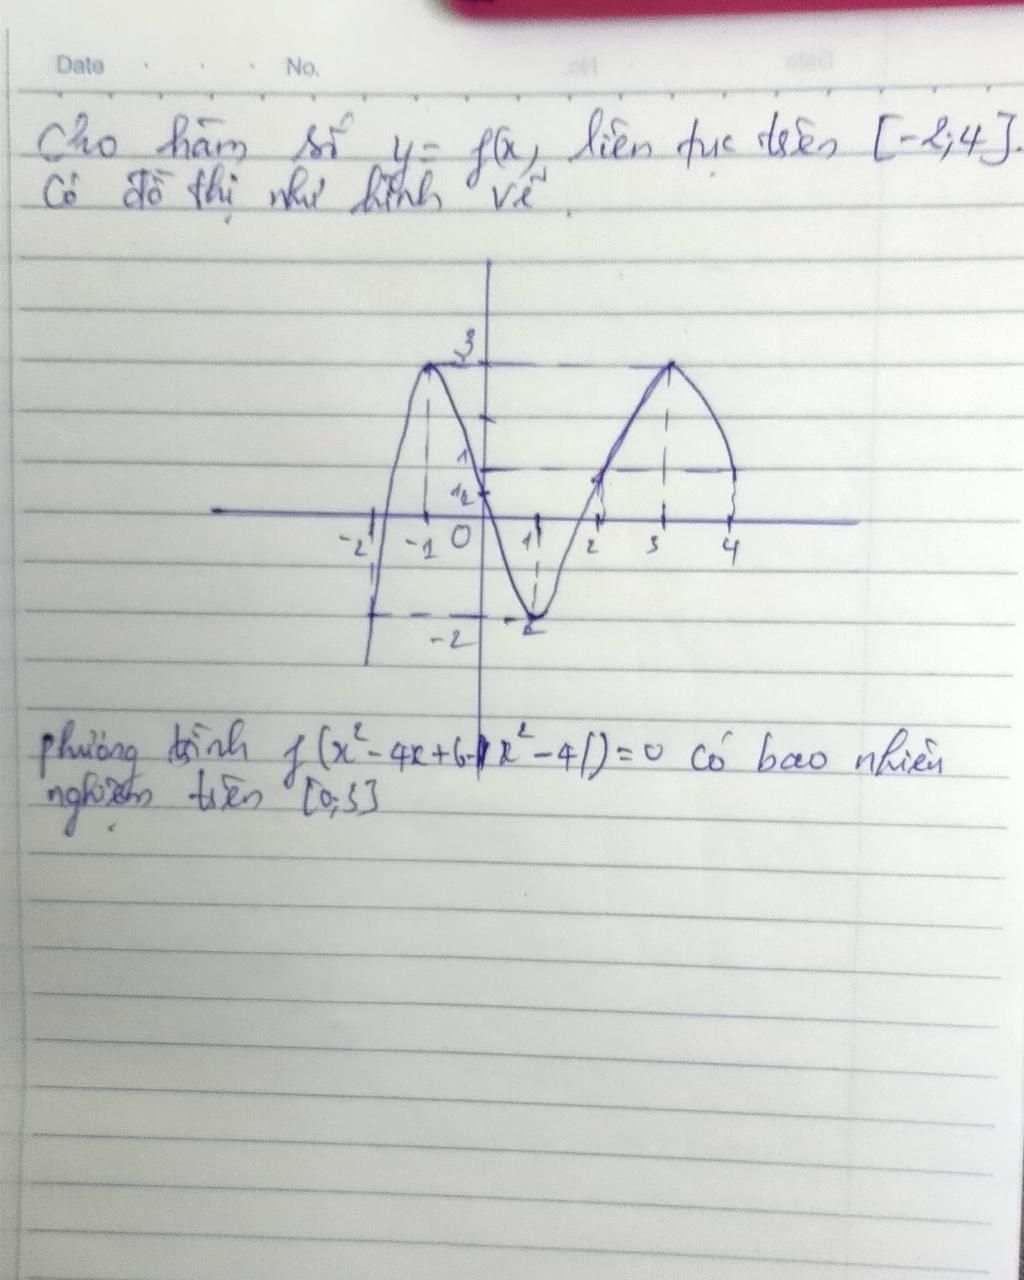 Date No.
Cho hàm số y = f(x) liên tục trên [-2;4].
Có đồ thị như hình vẽ.
3
1
-2 -1 O 1 2 3 4
-2
phương trình f(x² - 4x + 6 - |x² - 4|) = 0 có bao nhiêu
nghiệm trên [0;3]